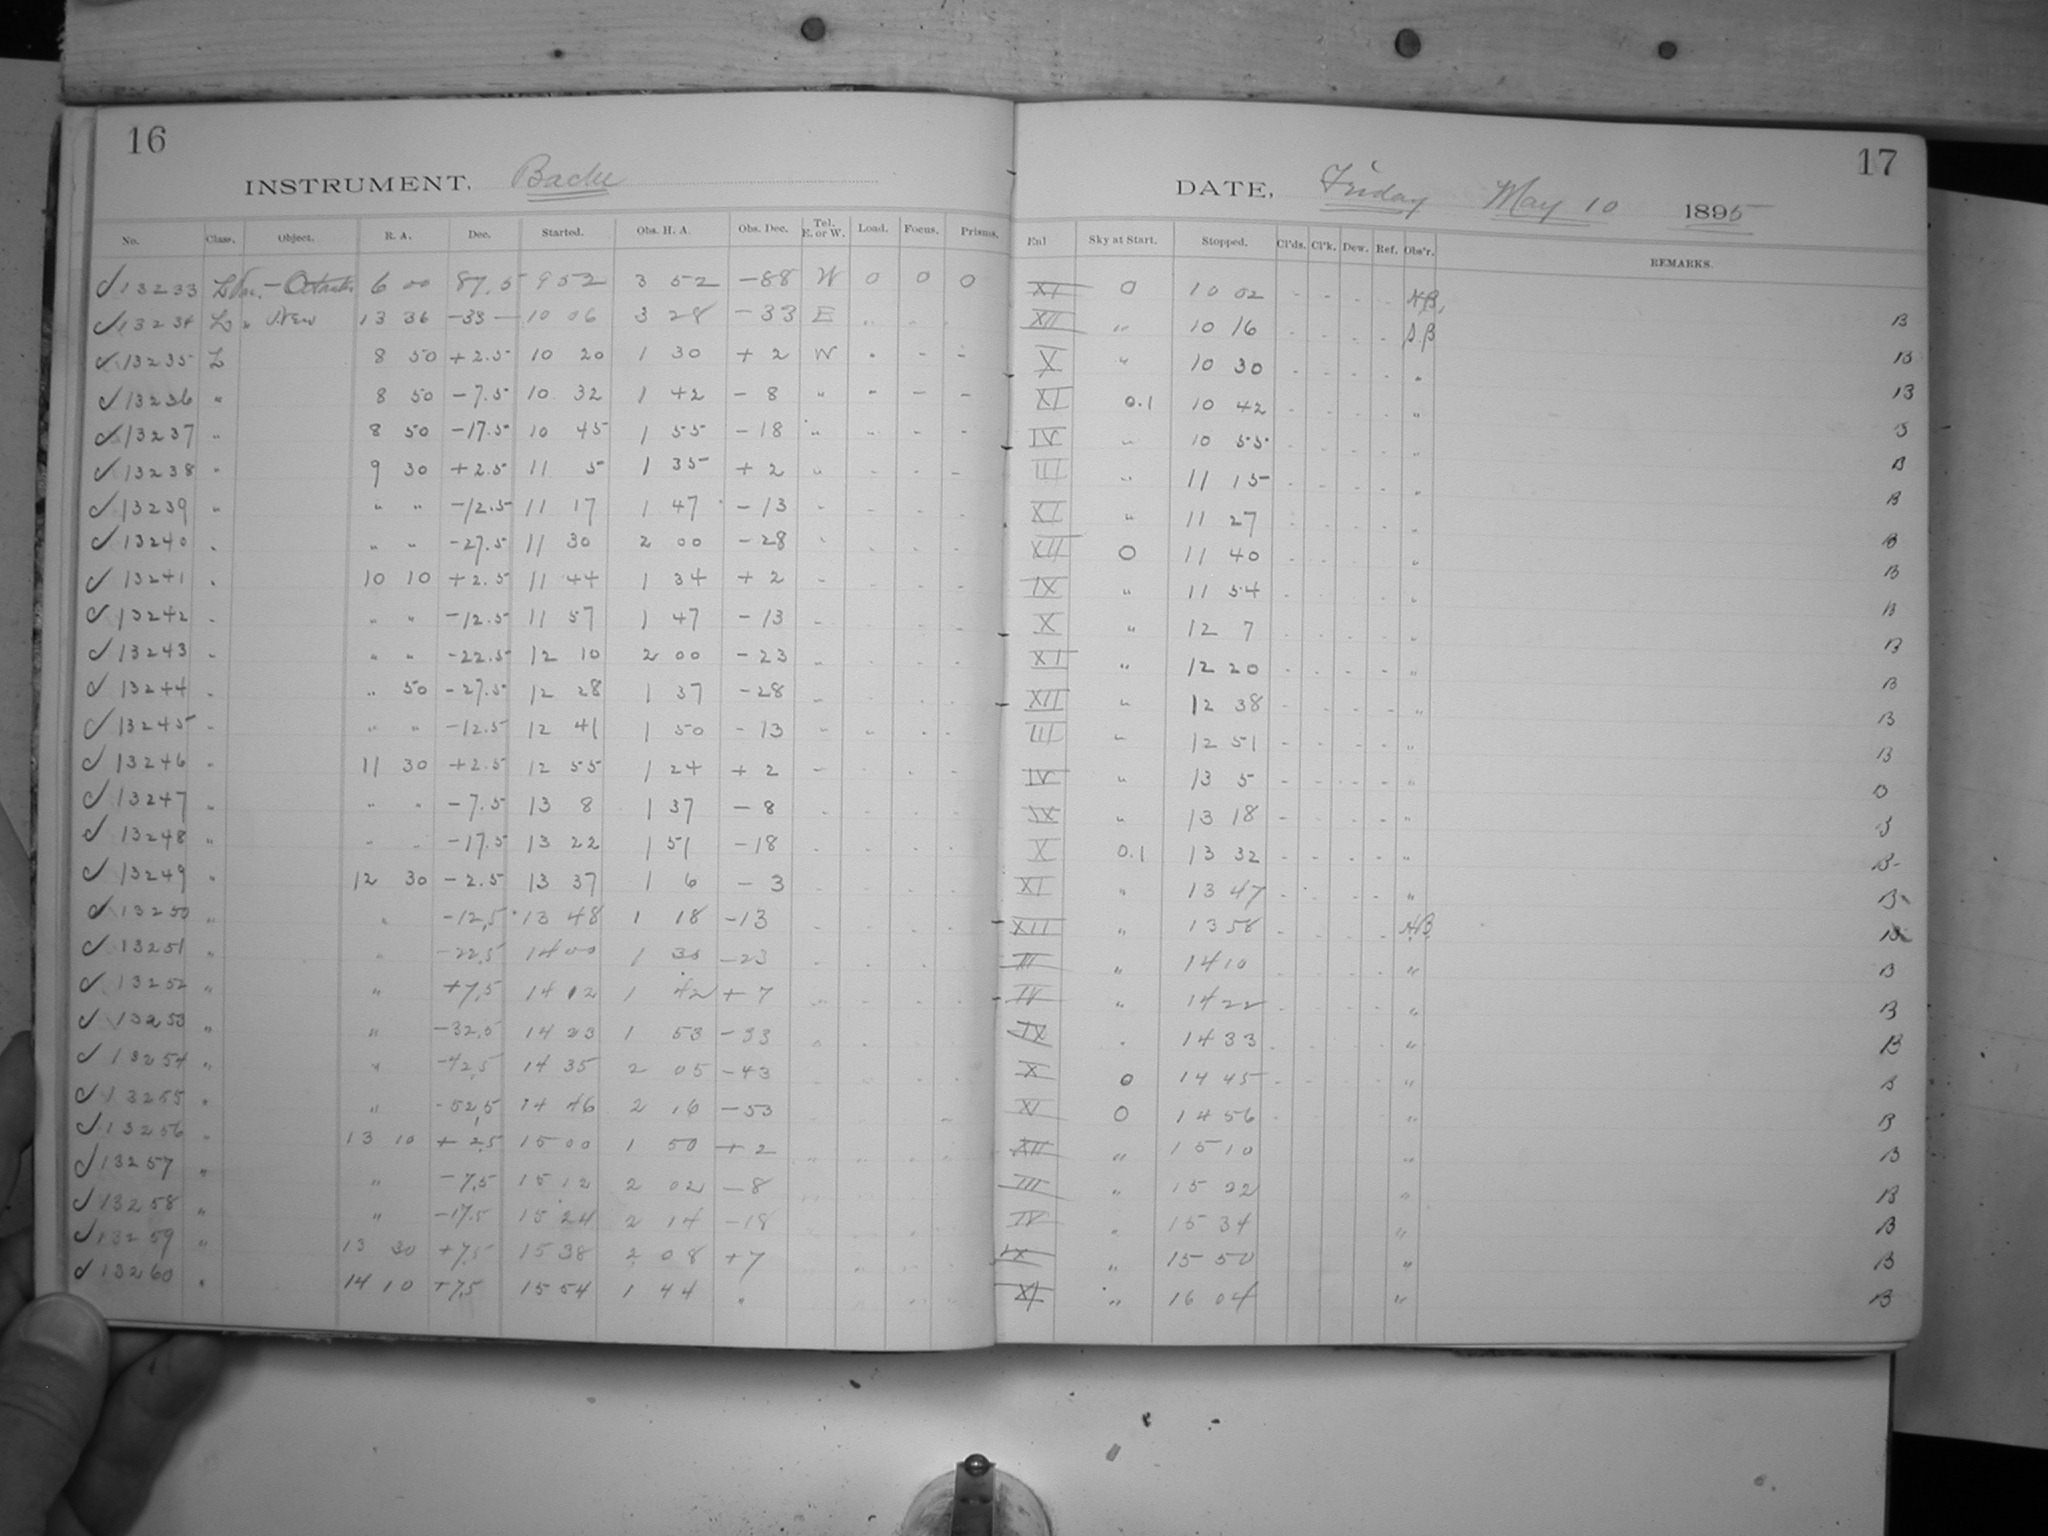 16
INSTRUMENT, Bache
No. Class. Object. R. A. Dec. Started. Obs. H. A. Obs. Dec. Tel. E. or W. Load. Focus. Prisms.
13233 L 6 00 87.5 9 52 3 52 -88 W 0 0 0
13234 L " New 13 36 -33 — 10 06 3 28 -33 E " " "
13235 L 8 50 +2.5 10 20 1 30 +2 W " - -
13236 " 8 50 -7.5 10 32 1 42 -8 " - - -
13237 " 8 50 -17.5 10 45 1 55 -18 " - - -
13238 " 9 30 +2.5 11 5 1 35 +2 " - - -
13239 " " " -12.5 11 17 1 47 -13 - - - -
13240 " " " -27.5 11 30 2 00 -28 " - - -
13241 " 10 10 +2.5 11 44 1 34 +2 - - - -
13242 " " " -12.5 11 57 1 47 -13 - - - -
13243 " " " -22.5 12 10 2 00 -23 " - - -
13244 " " 50 -27.5 12 28 1 37 -28 - - - -
13245 " " " -12.5 12 41 1 50 -13 " " - -
13246 " 11 30 +2.5 12 55 1 24 +2 - - - -
13247 " " " -7.5 13 8 1 37 -8 - - - -
13248 " " " -17.5 13 22 1 51 -18 - - - -
13249 " 12 30 -2.5 13 37 1 6 -3 - - - -
13250 " " -12.5 13 48 1 18 -13 - - - -
13251 " " -22.5 14 00 1 30 -23 - - - -
13252 " " +7.5 14 12 1 42 +7 " - - -
13253 " " -32.5 14 23 1 53 -33
13254 " " -42.5 14 35 2 05 -43
13255 " " -52.5 14 46 2 16 -53
13256 " 13 10 +2.5 15 00 1 50 +2 " " " "
13257 " " -7.5 15 12 2 02 -8
13258 " " -17.5 15 24 2 14 -18
13259 " 13 30 +7.5 15 38 2 08 +7
13260 " 14 10 +7.5 15 54 1 44 "
17
DATE, Friday May 10 1895
Enl Sky at Start. Stopped. Cl'ds. Cl'k. Dew. Ref. Obs'r. REMARKS.
XI 0 10 02 - - - - B
XII " 10 16 - - - - S.B B
X " 10 30 - - - - " B
XI 0.1 10 42 - - - - " B
IV " 10 55 - - - - " B
III " 11 15 - - - - " B
XI " 11 27 - - - - " B
XII 0 11 40 - - - - " B
IX " 11 54 - - - - " B
X " 12 7 - - - - " B
XI " 12 20 - - - - " B
XII " 12 38 - - - - " B
III " 12 51 - - - - " B
IV " 13 5 - - - - " B
IX " 13 18 - - - - " B
X 0.1 13 32 - - - - " B
XI " 13 47 - - - - " B
XII " 13 58 - - - - B
III " 14 10 - - - - " B
IV " 14 22 - - - - " B
IX " 14 33 - - - - " B
X 0 14 45 - - - - " B
XI 0 14 56 " B
XII " 15 10 " B
III " 15 22 " B
IV " 15 34 " B
IX " 15 50 " B
XI " 16 04 " B